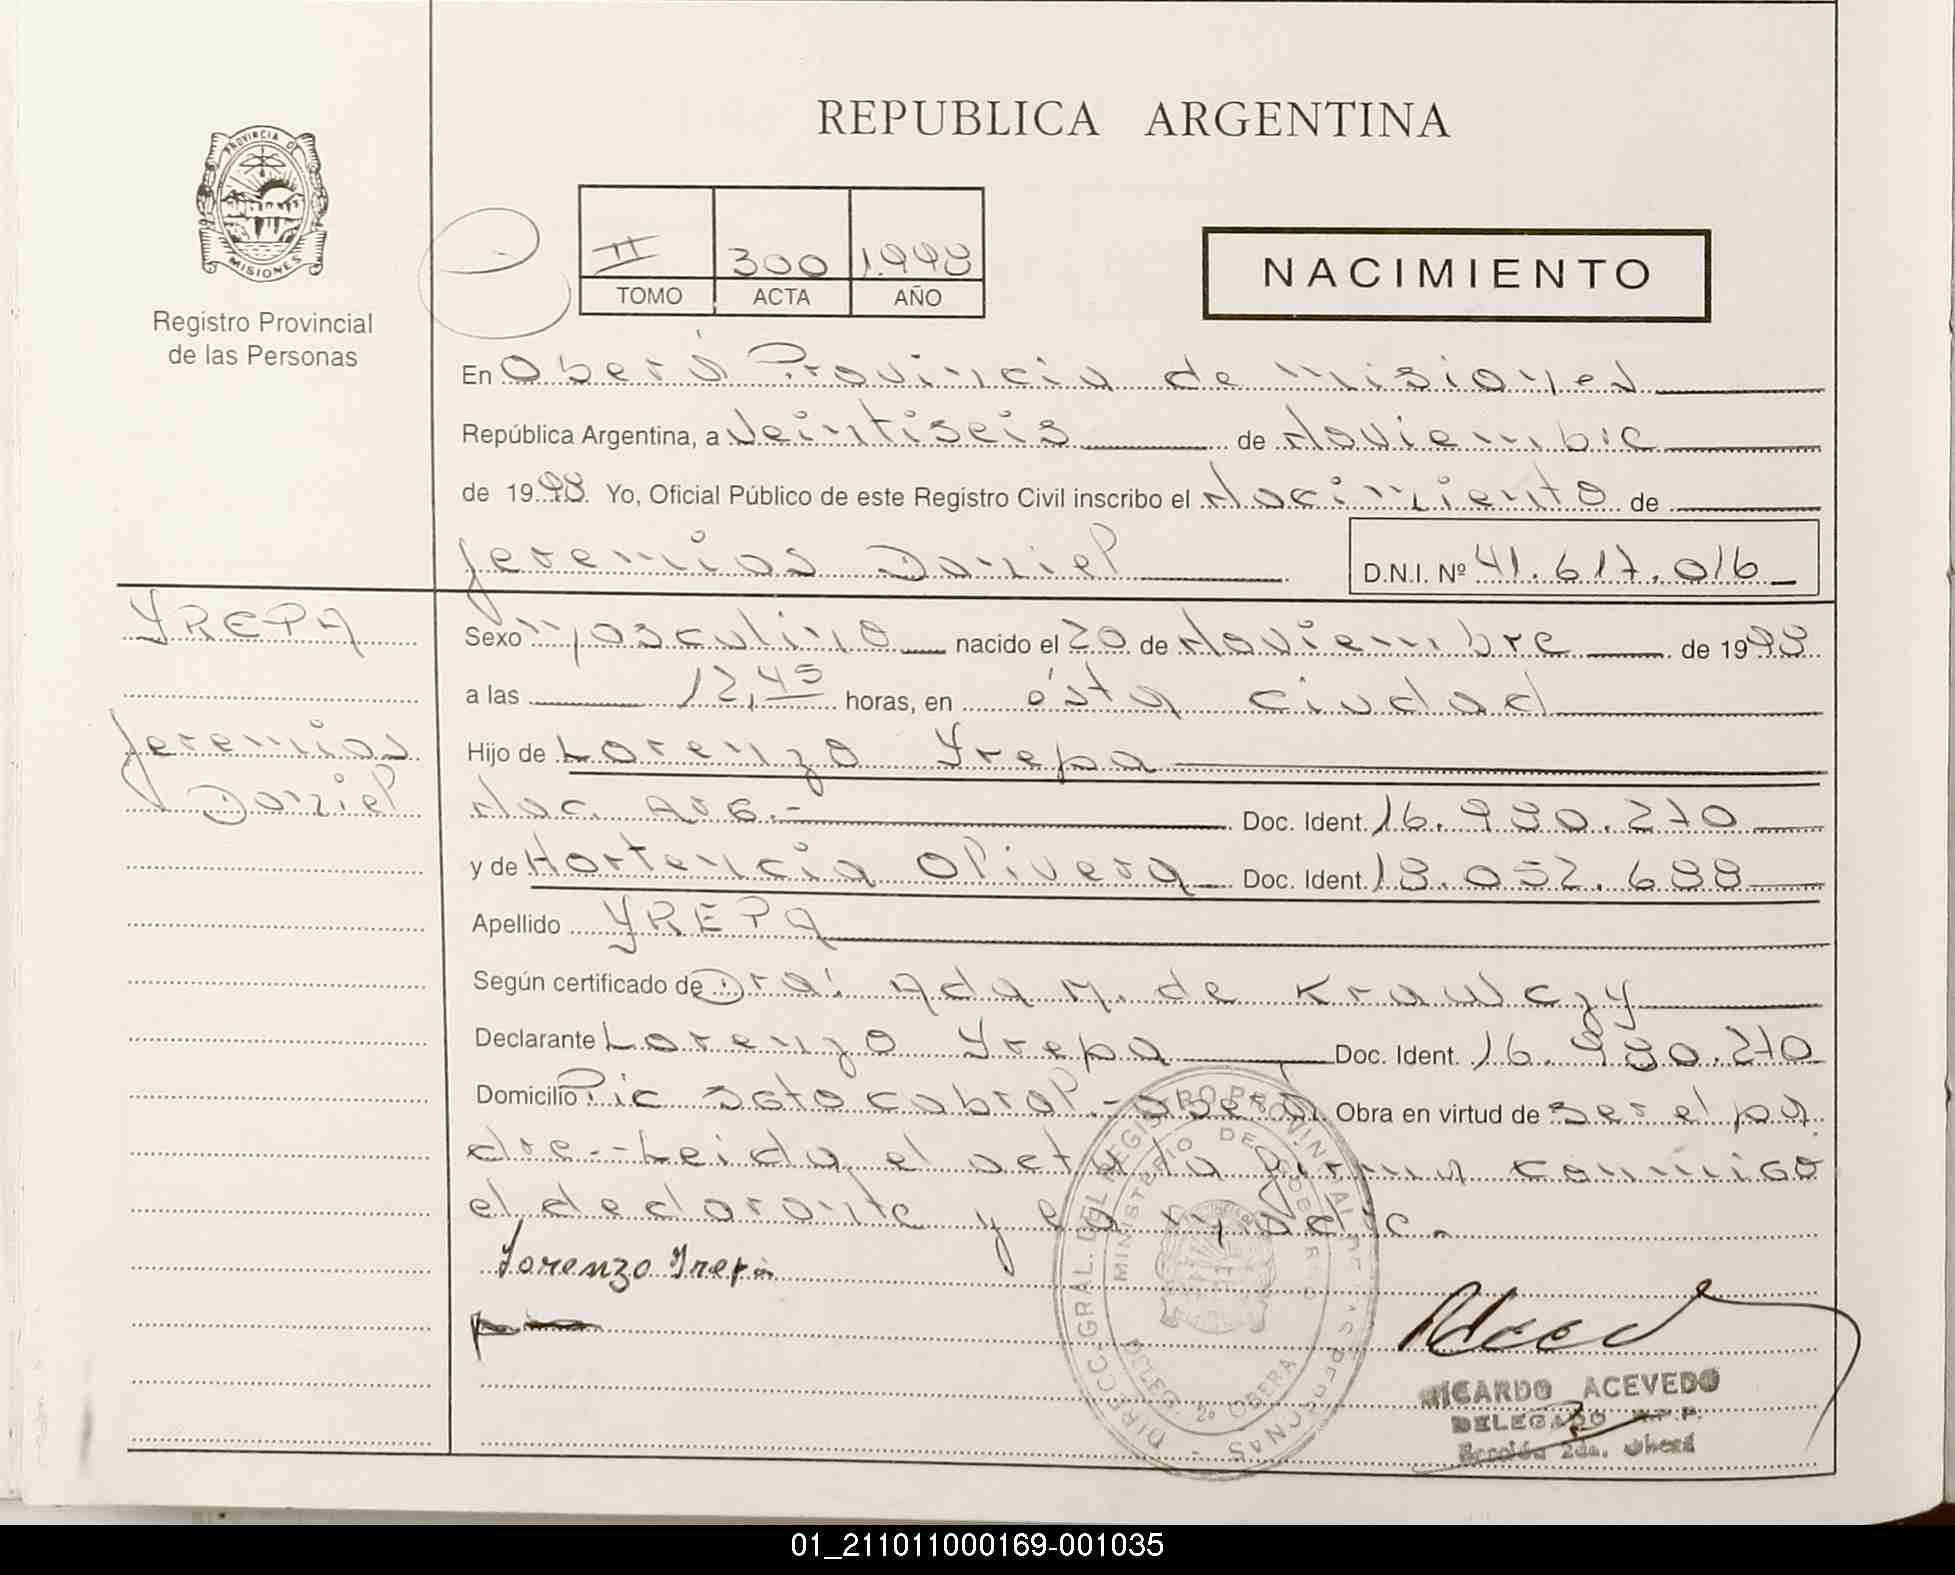 REPUBLICA ARGENTINA
PROVINCIA DE
MISIONES
Registro Provincial
de las Personas
II 300 1.998
TOMO ACTA AÑO
NACIMIENTO
En Oberá Provincia de Misiones
República Argentina, a Veintiseis de Noviembre
de 1998 Yo, Oficial Público de este Registro Civil inscribo el Nacimiento de
Jeremias Daniel D.N.I. Nº 41.617.016
YREPA
Jeremias
Daniel
Sexo Masculino nacido el 20 de Noviembre de 1998
a las 12,45 horas, en ésta ciudad
Hijo de Lorenzo Yrepa
Nac. Arg.- Doc. Ident. 16.980.270
y de Hortencia Olivera Doc. Ident. 18.052.688
Apellido YREPA
Según certificado de Dra: Ada M. de Krawczy
Declarante Lorenzo Yrepa Doc. Ident. 16.980.270
Domicilio Pic Soto Cabral-Oberá Obra en virtud de ser el pa
dre.-Leida el acta la firma conmigo
el declarante y la madre.
Lorenzo Yrepa
DIRECC. GRAL. DEL REGISTRO PROVINCIAL DE LAS PERSONAS
MINISTERIO DE GOBIERNO
2º OBERA
RICARDO ACEVEDO
DELEGADO R.P.P.
Sección 2da. Oberá
01_211011000169-001035